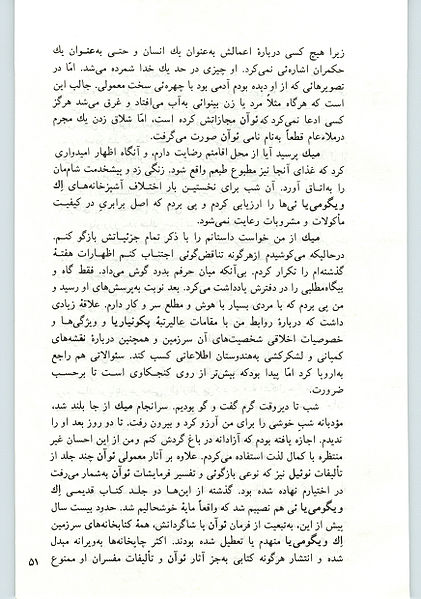 زیرا هیچ کسی دربارهٔ اعمالش به‌عنوان یك انسان و حتـی به‌عنـوان یك
حکمران اشاره‌ئی نمی‌کرد. او چیزی در حد یك خدا شمرده می‌شد. امّا در
تصویرهائی که از او دیده بودم آدمی بود با چهره‌ئی سخت معمولی. جالب این
است که هرگاه مثلاً مرد یا زن بینوائی به‌آب می‌افتاد و غرق می‌شد هرگز
کسی ادعا نمی‌کرد که توآن مجازاتش کرده است، امّا شلاق زدن یك مجرم
درملاءعام قطعاً به‌نام نامی توآن صورت می‌گرفت.
میك پرسید آیا از محل اقامتم رضایت دارم، و آنگاه اظهار امیدواری
کرد که غذای آنجا نیز مطبوع طبعم واقع شود. زنگی زد و پیشخدمت شام‌مان
را به‌اتاق آورد. آن شب برای نخستین بار اختلاف آشپزخانه‌های اِك
ویگومی‌یا ئی‌ها را ارزیابی کردم و پی بردم که اصل برابری در کیفیت
مأکولات و مشروبات رعایت نمی‌شود.
میك از من خواست داستانم را با ذکر تمام جزئیـاتش بازگو کنـم.
درحالیکه می‌کوشیدم ازهرگونه تناقض‌گوئی اجتنـاب کنـم اظهـارات هفتـهٔ
گذشته‌ام را تکرار کردم. بی‌آنکه میان حرفم بدود گوش می‌داد. فقط گاه و
بیگاه‌مطلبی را در دفترش یادداشت می‌کرد. بعد نوبت به‌پرسش‌های او رسید و
من پی بردم که با مردی بسیار با هوش و مطلع سر و کار دارم. علاقهٔ زیادی
داشت که دربارهٔ روابط من با مقامات عالیرتبهٔ پکوتیاریا و ویژگی‌هـا و
خصوصیات اخلاقی شخصیت‌های آن سرزمین و همچنین دربارهٔ نقشه‌های
کمپانی و لشکرکشی به‌هندوستان اطلاعاتی کسب کند. سئوالاتی هم راجع
به‌اروپا کرد امّا پیدا بودکه بیش‌تر از روی کنجکـاوی اسـت تا برحسـب
ضرورت.
شب تا دیروقت گرم گفت و گو بودیم. سرانجام میك از جا بلند شد،
مؤدبانه شب خوشی را برای من آرزو کرد و بیرون رفت. تا دو روز بعد او را
ندیدم. اجازه یافته بودم که آزادانه در باغ گردش کنم ومن از این احسان غیر
منتظره با کمال لذت استفاده می‌کردم. علاوه بر آثار معمولی توآن چند جلد از
تألیفات نوئیل نیز که نوعی بازگوئی و تفسیر فرمایشات توآن به‌شمار می‌رفت
در اختیارم نهاده شده بود. گذشته از این‌ها دو جلـد کتـاب قدیمـی اِك
ویگومی‌یا ئی هم نصیبم شد که واقعاً مایهٔ خوشحالیم شد. حدود بیست سال
پیش از این، به‌تبعیت از فرمان توآن یا شاگردانش، همهٔ کتابخانه‌های سرزمین
اِك ویگومی‌یا منهدم یا تعطیل شده بودند. اکثر چاپخانه‌ها به‌ویرانه مبدل
شده و انتشار هرگونه کتابی به‌جز آثار توآن و تألیفات مفسران او ممنوع
۵۱